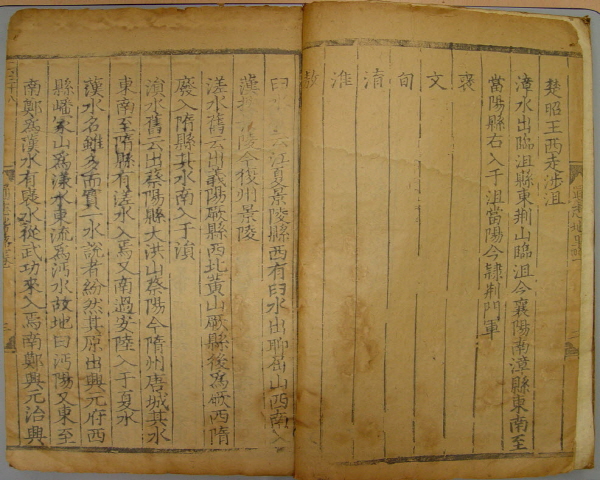 楚昭王西走涉沮
漳水出臨沮縣東荆山臨沮今襄陽南漳縣東南至
當陽縣右入于沮當陽今隸荆門軍
襄 文 甸 淯 淮
云江夏竟陵縣西有臼水出聊屈山西南入
陵今復州景陵
溠水舊云出義陽厥縣西北黃山厥縣後爲厥西隋
廢入隋縣其水南入于溳
溳水舊云出蔡陽縣大洪山蔡陽今隋州唐城其水
東南至隋縣有溠水入焉又南過安陸入于夏水
漢水名雖多而實一水說者紛然其原出興元府西
縣嶓冢山爲漾水東流爲沔水故地曰沔陽又東至
南鄭爲漢水有襃水從武功來入焉南鄭興元治興